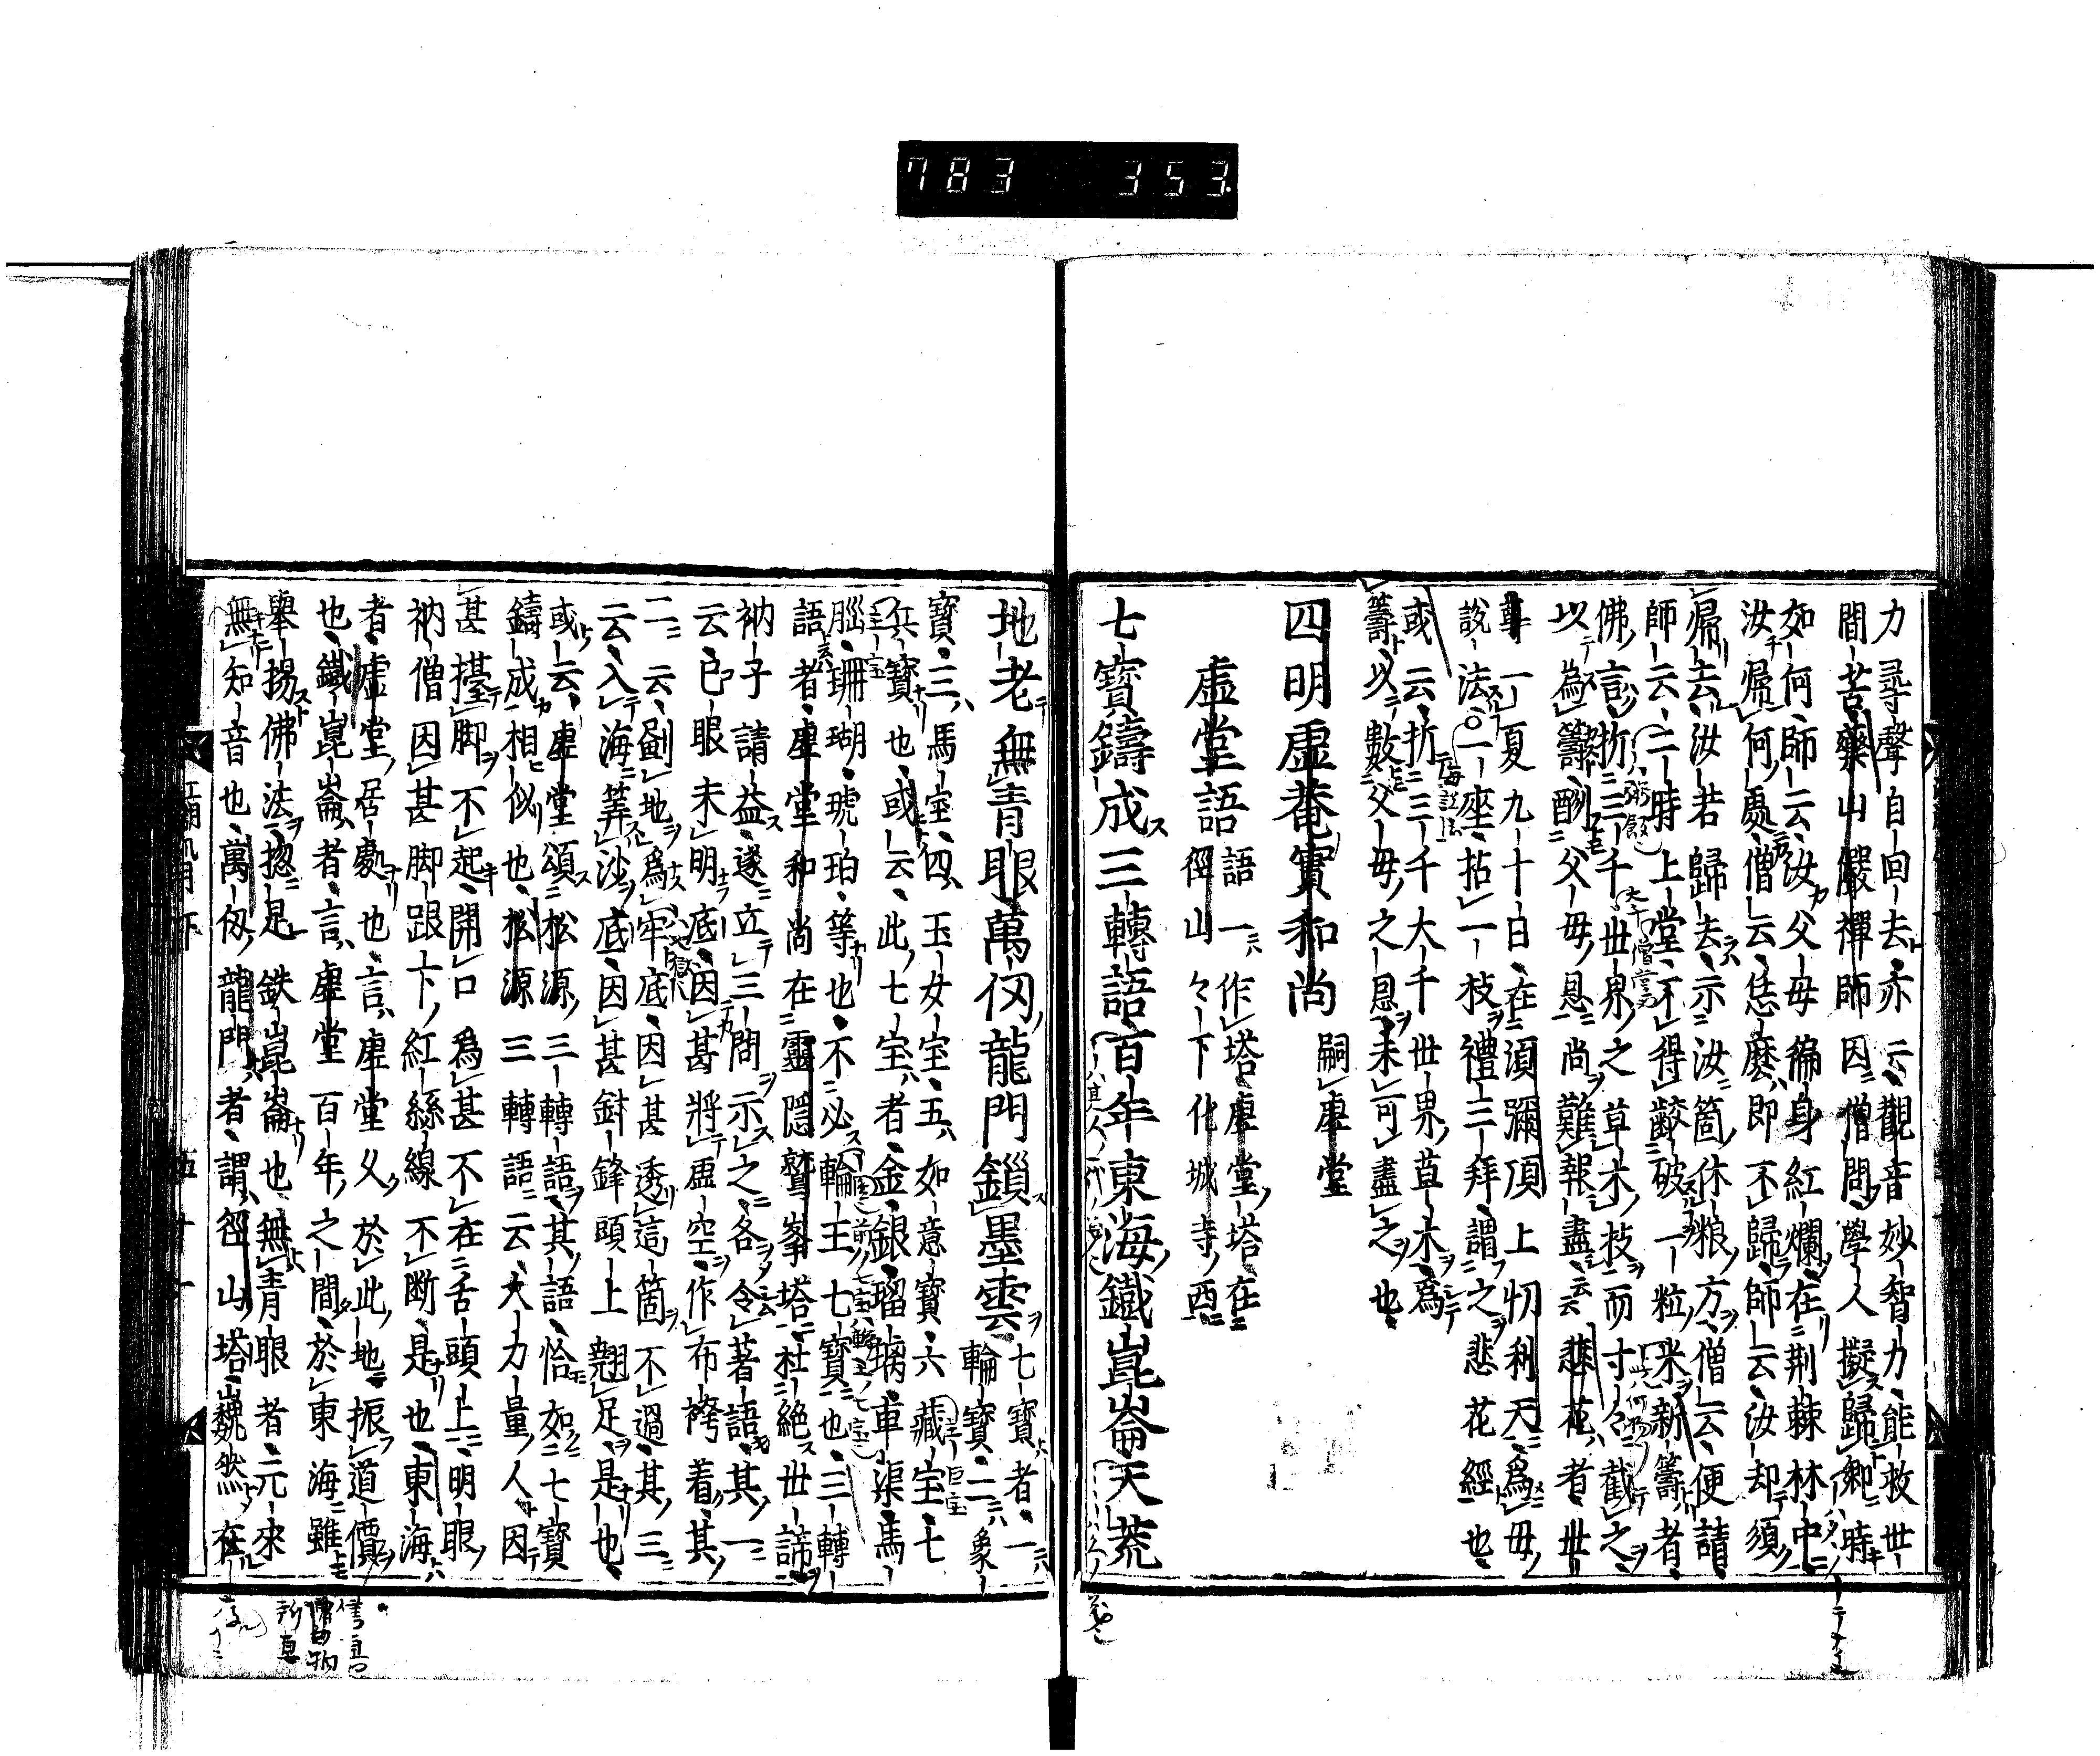 783 353
力尋聲自回去亦云觀音妙智力能救世
間苦藥山嚴禪師因僧問學人擬歸鄉時
如何師云汝父母徧身紅爛在荆棘林中
汝歸何處僧云恁麼即不歸師云汝却須
歸去汝若歸去示汝箇休粮方僧云便請
師云二時上堂不得齩破一粒米新籌者
佛言折三千世界之草木枝而寸々截之
以為籌酬父母恩尚難報盡云云悲花者世
事一夏九十日在須彌頂上忉利天為母
說法○一座拈一枝禮三拜謂之悲花經也
或云折三千大千世界草木為
籌以數父母之恩未可盡之也
四明虛菴實和尚 嗣虛堂
虛堂語 語一作塔虛堂塔在
徑山々下化城寺西
七寶鑄成三轉語百年東海鐵崑崙天荒
地老無青眼萬仞龍門鎖墨雲 七寶者一
輪寶二象
寶三馬宝四玉女宝五如意寶六藏宝七
兵寶也或云此七宝者金銀瑠璃車渠馬
腦珊瑚琥珀等也不必輪王七寶也三轉
語者虛堂和尚在靈隱鷲峯塔杜絕世諦
衲子請益遂立三問示之各令著語其一
云已眼未明底因甚將虛空作布袴着其
二云劃地為牢底因甚透這箇不過其三
云入海筭沙底因甚針鋒頭上翹足是也
或云虛堂頌松源三轉語其語恰如七寶
鑄成相似也松源三轉語云大力量人因
甚擡脚不起開口為甚不在舌頭上明眼
衲僧因甚脚跟下紅絲線不断是也東海
者虛堂居處也言虛堂久於此地振道價
也鐵崑崙者言虛堂百年之間於東海雖
舉揚佛法揔是鉄崑崙也無青眼者元來
無知音也萬仭龍門者謂徑山塔巍然在
五十一